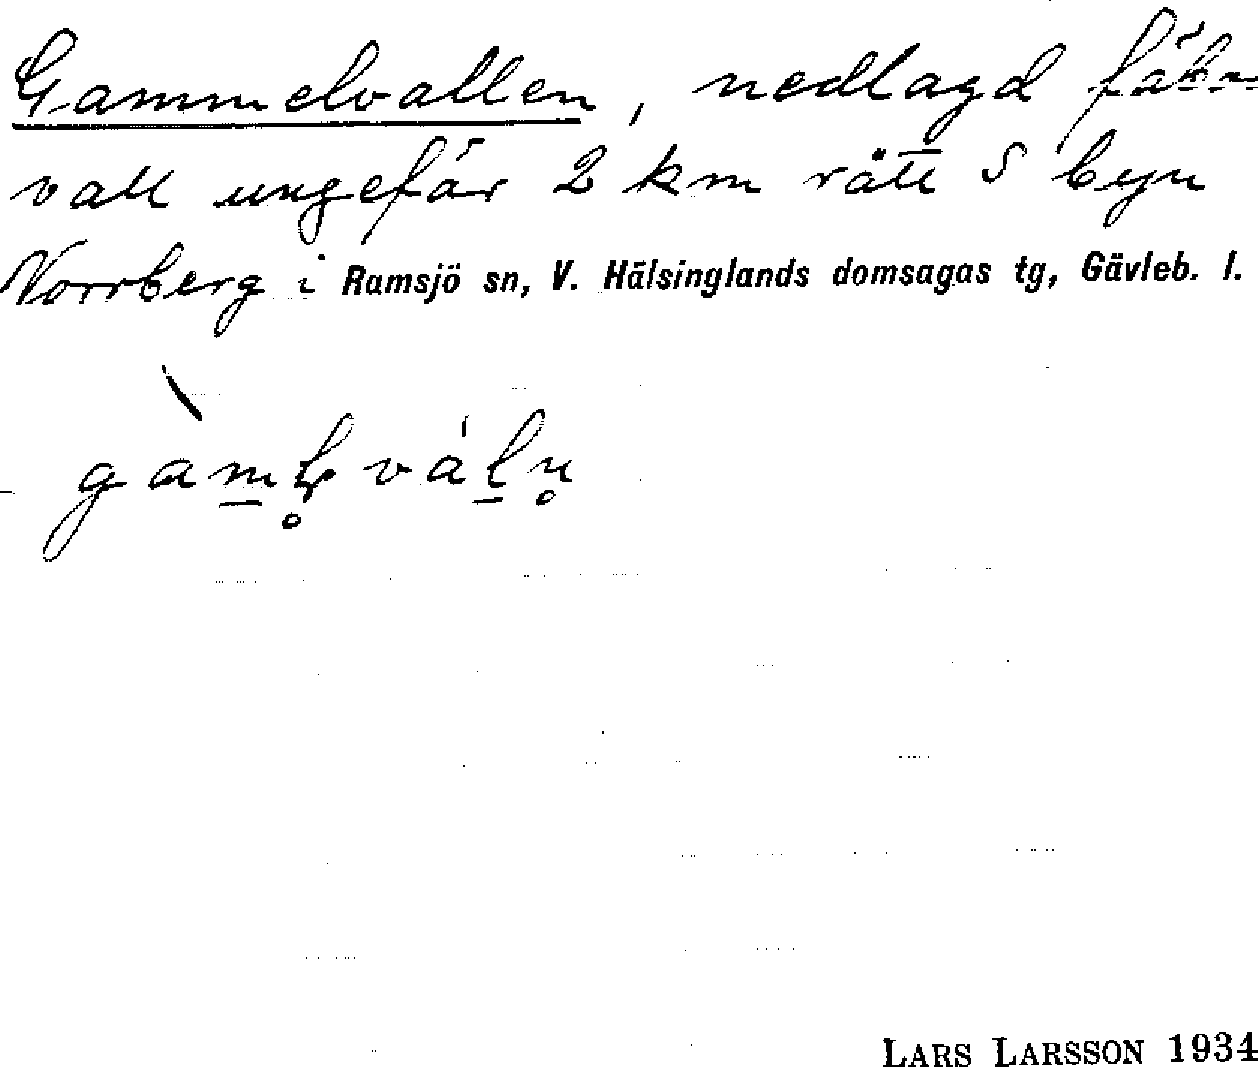 Gammelvallen, nedlagd fäbo-
vall ungefär 2 km rätt S byn
Norrberg i Ramsjö sn, V. Hälsinglands domsagas tg, Gävleb. l.
LARS LARSSON 1934